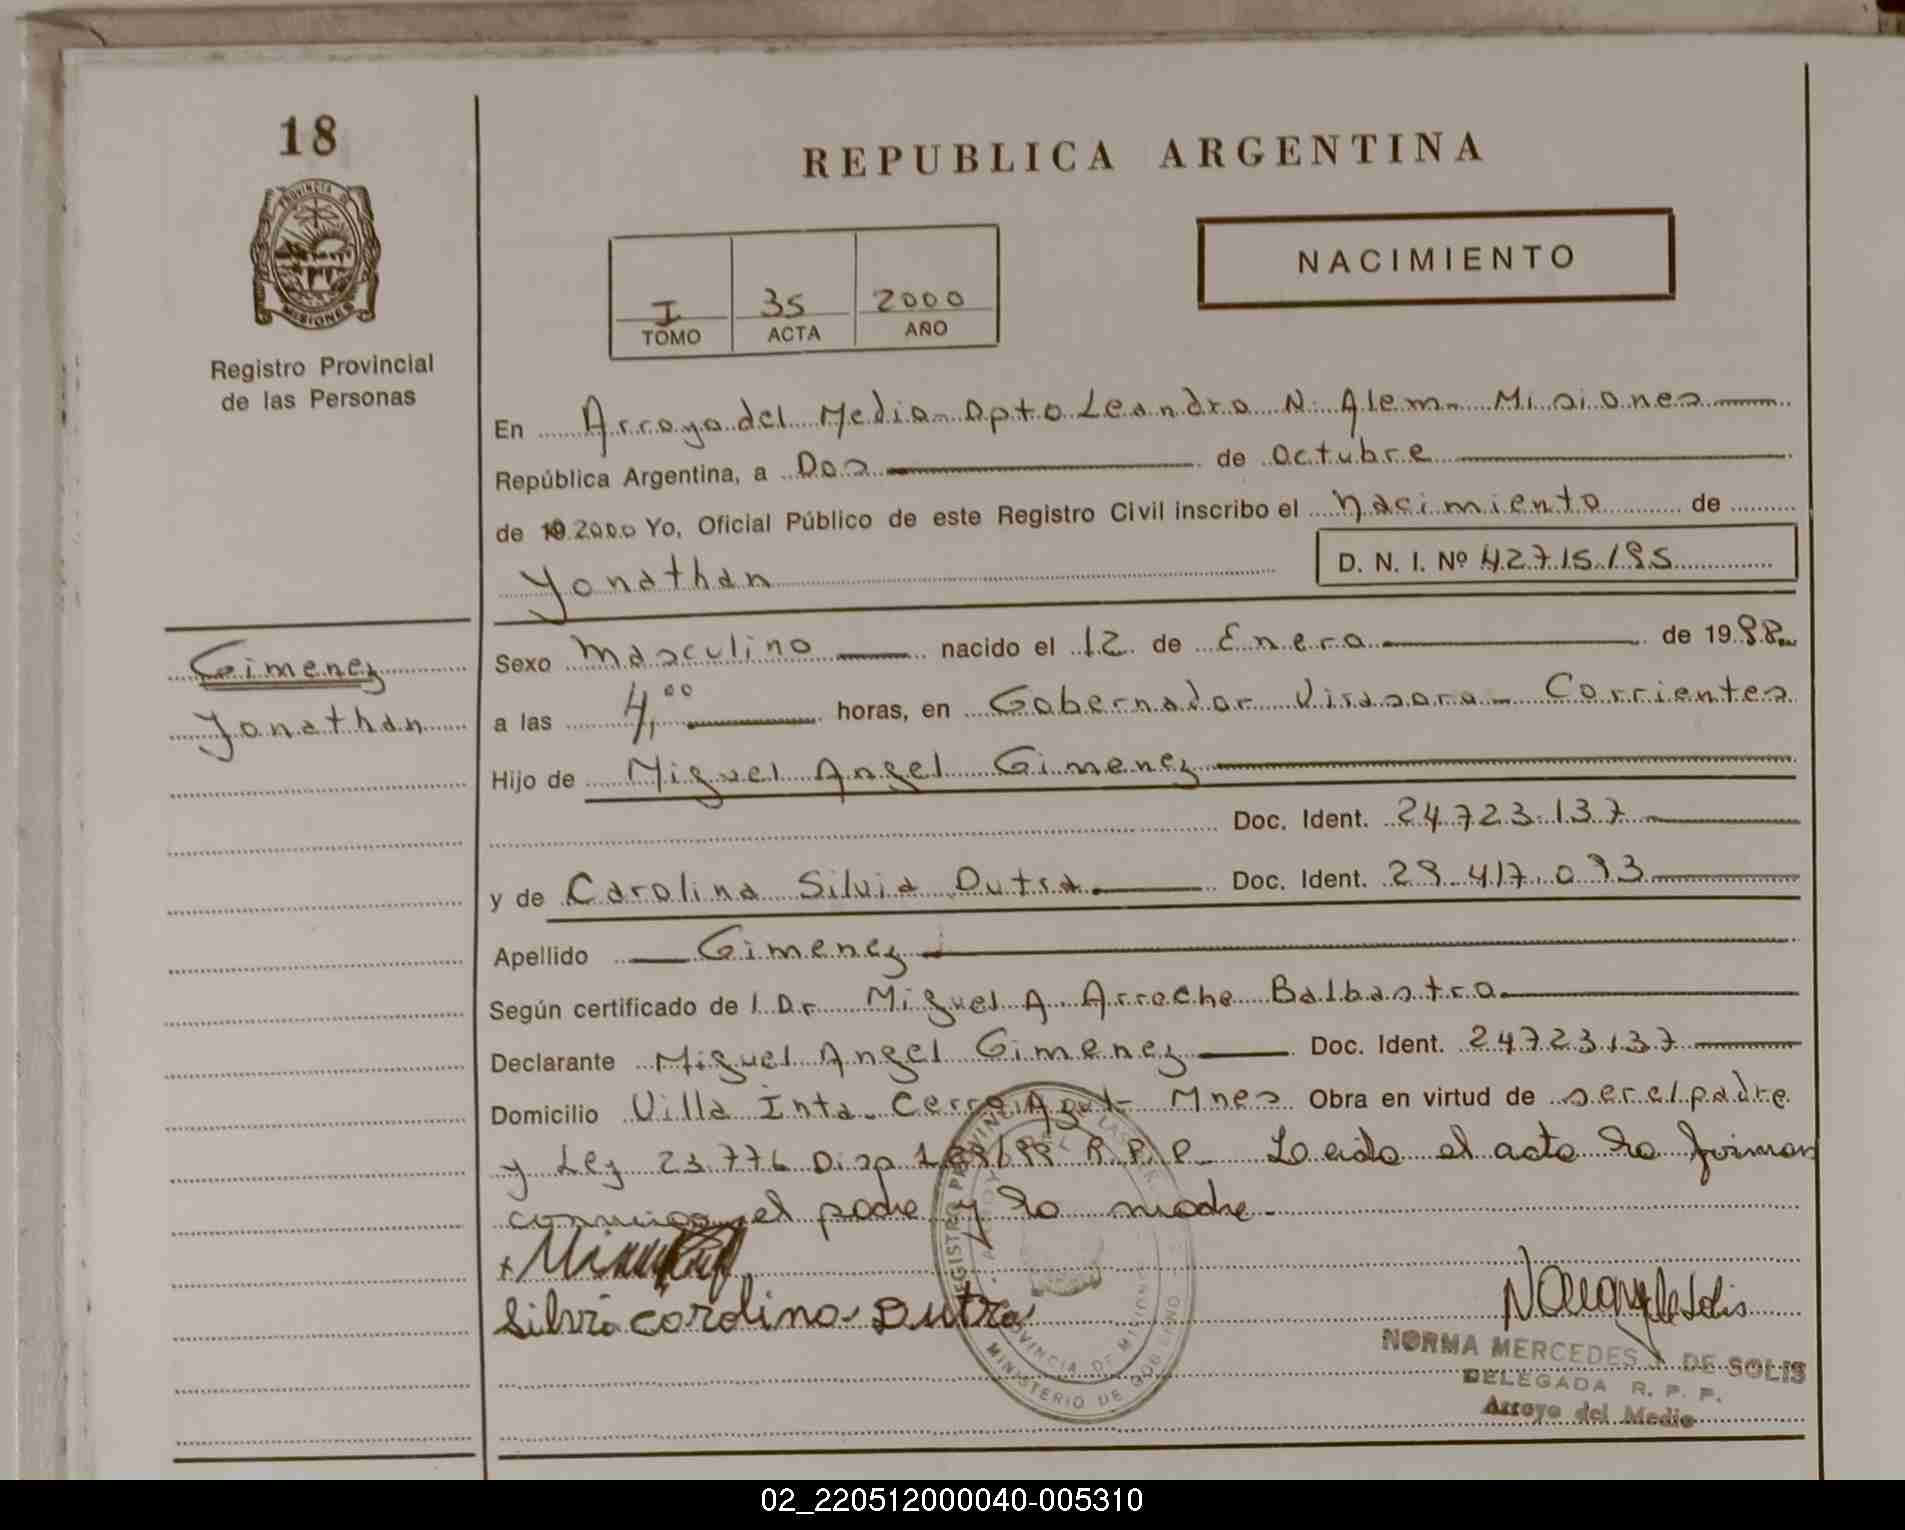 18
REPUBLICA ARGENTINA
PROVINCIA D
MISIONES
Registro Provincial
de las Personas
NACIMIENTO
I 35 2000
TOMO ACTA AÑO
En Arroyo del Medio - Dpto Leandro N. Alem - Misiones
República Argentina, a Dos de octubre
de 19 2000 Yo, Oficial Público de este Registro Civil inscribo el nacimiento de
Yonathan D. N. I. Nº 42715195
Gimenez
Yonathan
Sexo masculino nacido el 12 de Enero de 1998
a las 4,00 horas, en Gobernador Virasoro - Corrientes
Hijo de Miguel Angel Gimenez
Doc. Ident. 24.723.137
y de Carolina Silvia Dutra Doc. Ident. 29.417.093
Apellido Gimenez
Según certificado de l Dr Miguel A Arroche Balbastro
Declarante Miguel Angel Gimenez Doc. Ident. 24723137
Domicilio Villa Inta - Cerro Azul - Mnes Obra en virtud de ser el padre
y Ley 23.776 Disp R.P.P. - Leida el acta la firman
conmigo el padre y la madre.
Silvia Carolina Dutra
NORMA MERCEDES J. DE SOLIS
DELEGADA R. P. P.
Arroyo del Medio
PROVINCIA DE MISIONES
MINISTERIO DE GOBIERNO
02_220512000040-005310